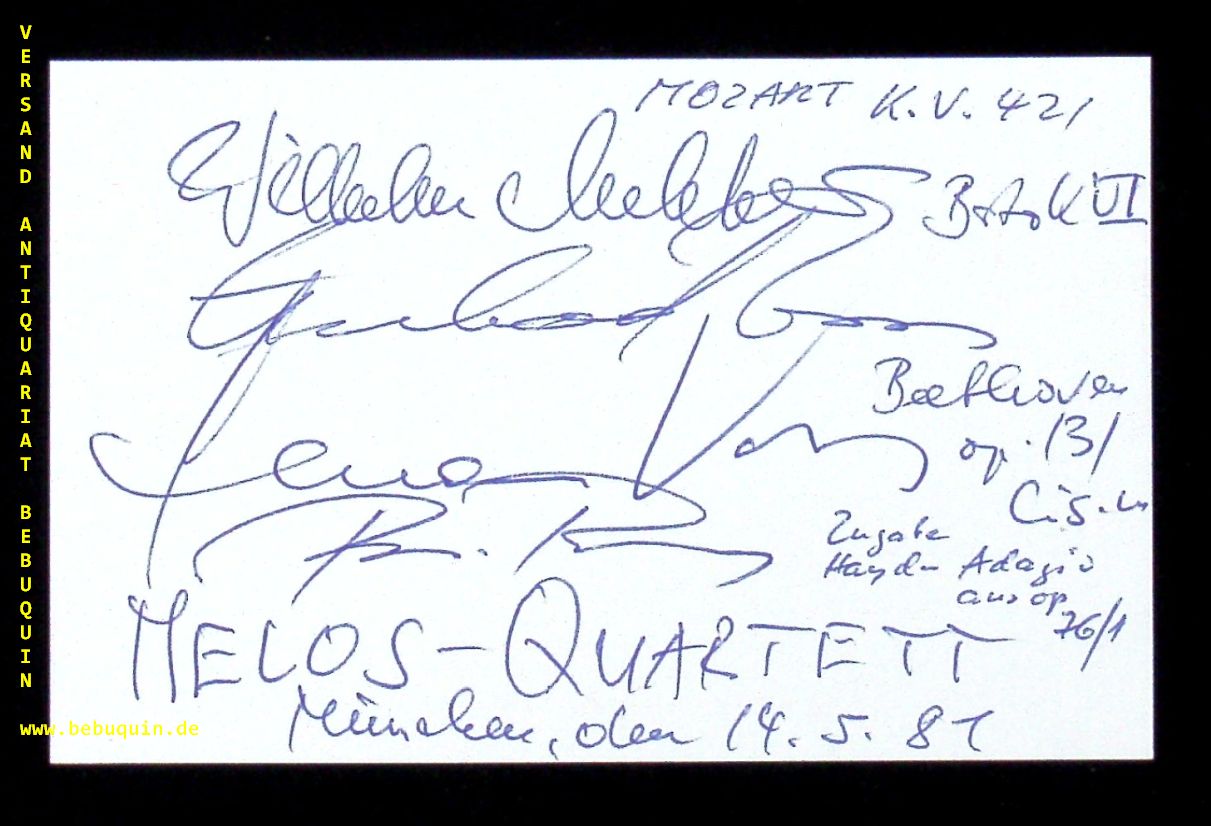 VERSAND ANTIQUARIAT BEBUQUIN
www.bebuquin.de
MOZART K.V. 421
Wilhelm Melcher
Bartok VI
Gerhard Voss
Beethoven
op. 131
Cis-m
Zugabe
Haydn Adagio
aus op
76/1
MELOS-QUARTETT
München, den 14. 5. 81